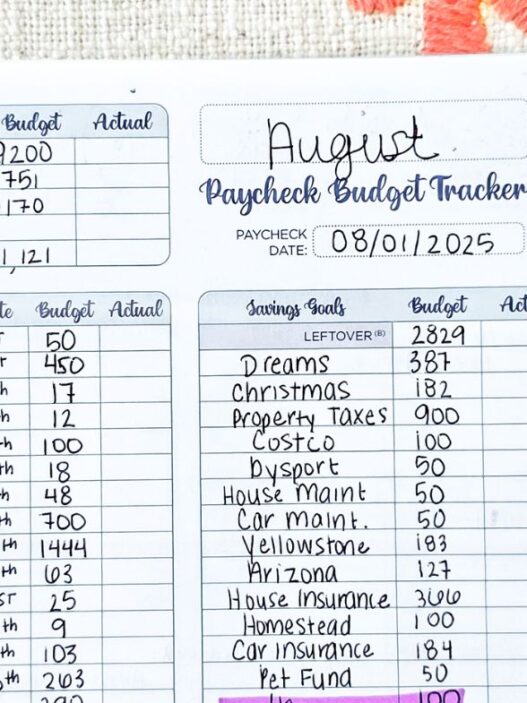 Budget Actual
9200
751
170
1,121
August
Paycheck Budget Tracker
PAYCHECK DATE: 08/01/2025
Budget Actual
50
450
17
12
100
18
48
700
1444
63
25
9
103
263
Savings Goals Budget
LEFTOVER (B) 2829
Dreams 387
Christmas 182
Property Taxes 900
Costco 100
Dysport 50
House Maint 50
Car Maint. 50
Yellowstone 183
Arizona 127
House Insurance 366
Homestead 100
Car Insurance 184
Pet Fund 50
100